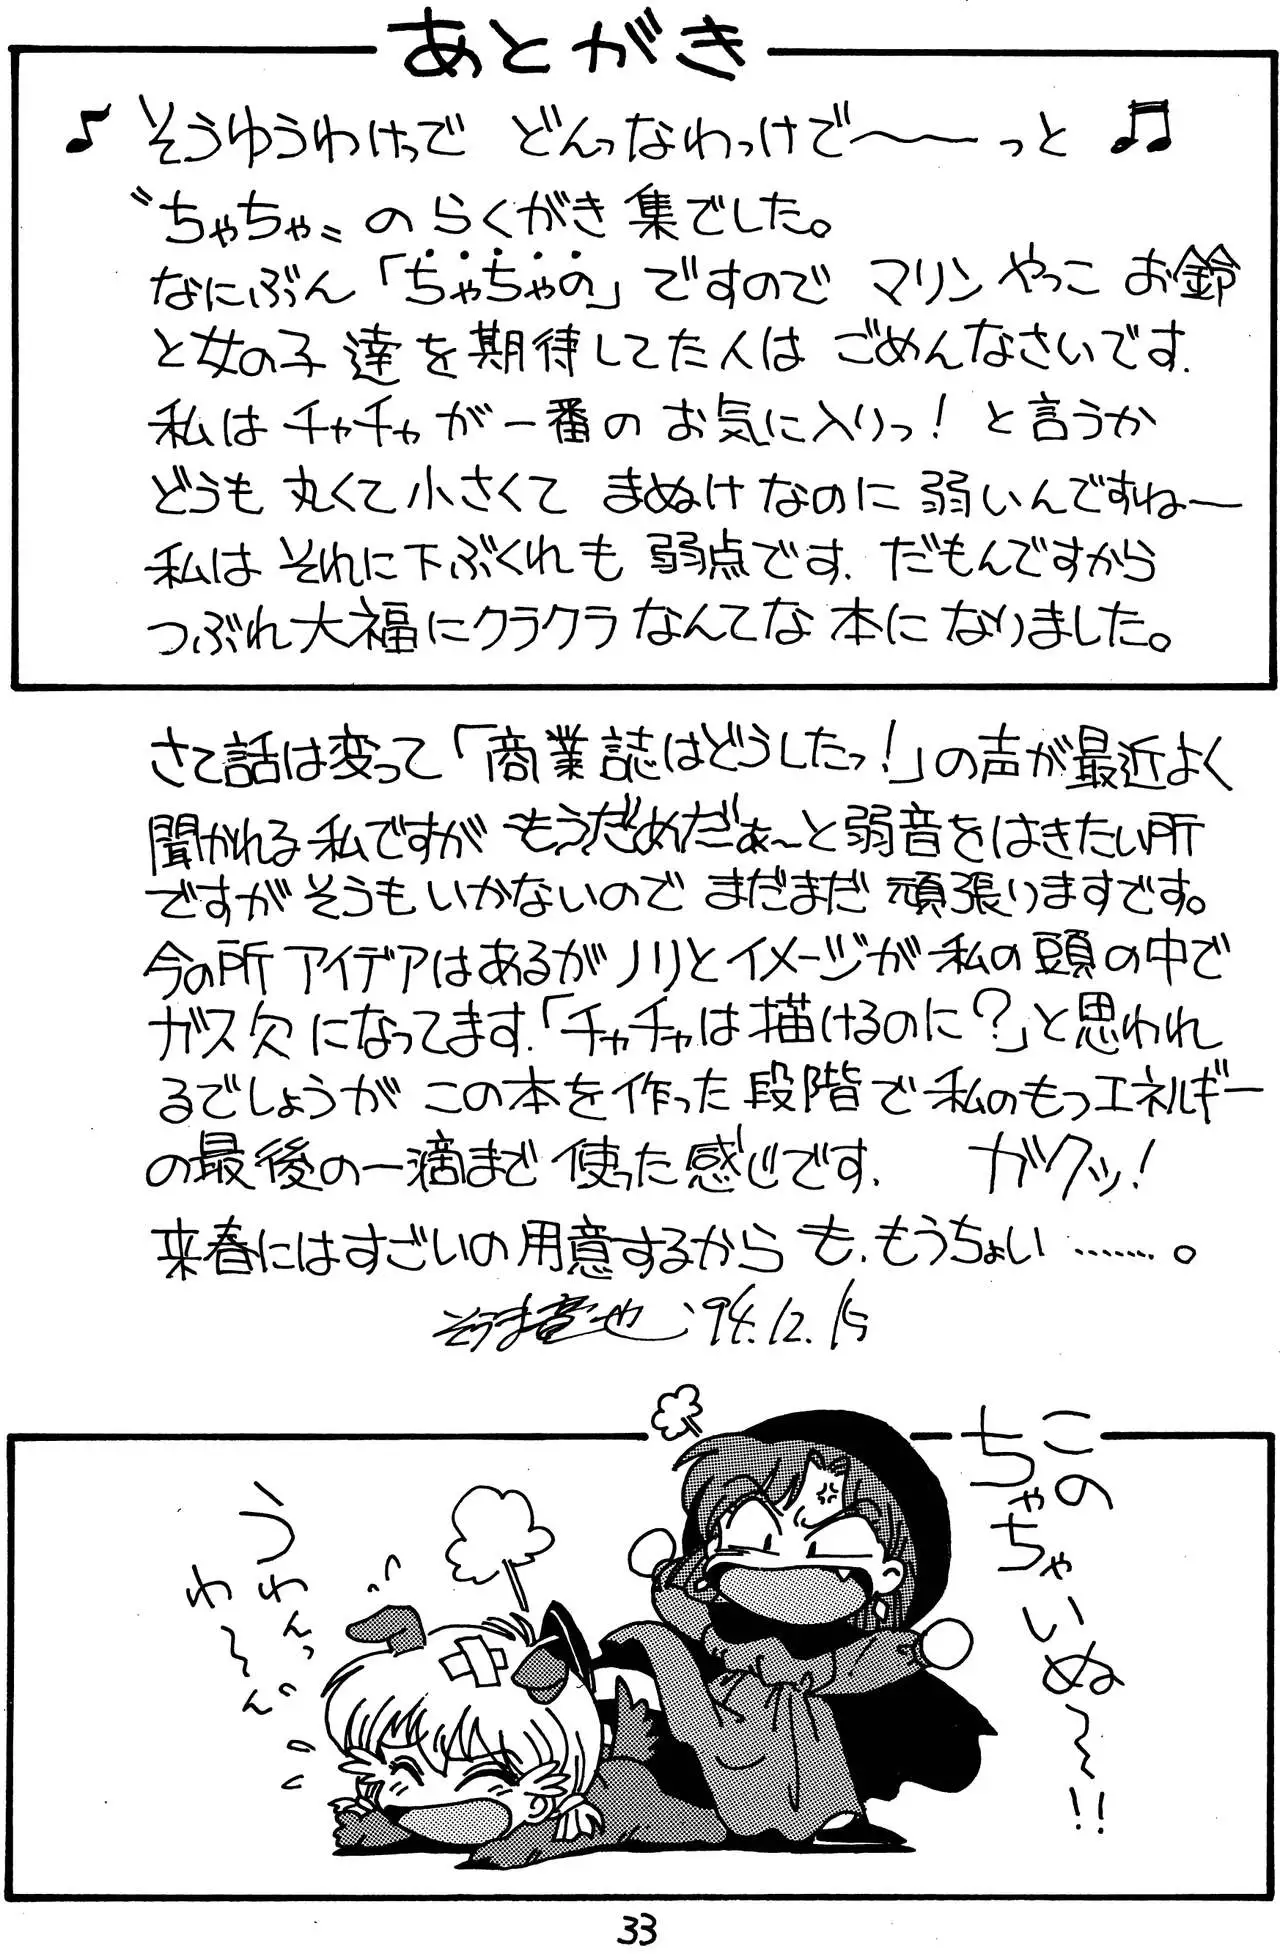 あとがき
♪ そうゆうわけっで どんっなわっけで〜〜っと ♫
〝ちゃちゃ〟の らくがき 集でした。
なにぶん「ちゃちゃの」ですので マリン やっこ お鈴
と女の子 達を期待してた人は ごめんなさいです.
私は チャチャが一番の お気に入りっ! と言うか
どうも 丸くて小さくて まぬけなのに 弱いんですね〜
私は それに下ぶくれも 弱点です. だもんですから
つぶれ大福にクラクラ なんてな 本に なりました。
さて話は変って「商業誌はどうしたっ!」の声が最近よく
聞かれる 私ですが もうだめだぁ〜と弱音をはきたい所
ですが そうも いかないので まだまだ 頑張りますです。
今の所 アイデアはあるが ノリとイメージが 私の頭の中で
ガス欠 になってます.「チャチャは描けるのに?」と思われ
るでしょうが この本を作った段階で 私のもつエネルギー
の最後の一滴まで 使った感じです. ガクッ!
来春にはすごいの用意するから も、もうちょい ……。
そうま竜也 '94.12.15
このちゃちゃいぬ〜!!
うわんっ
わ〜ん
33